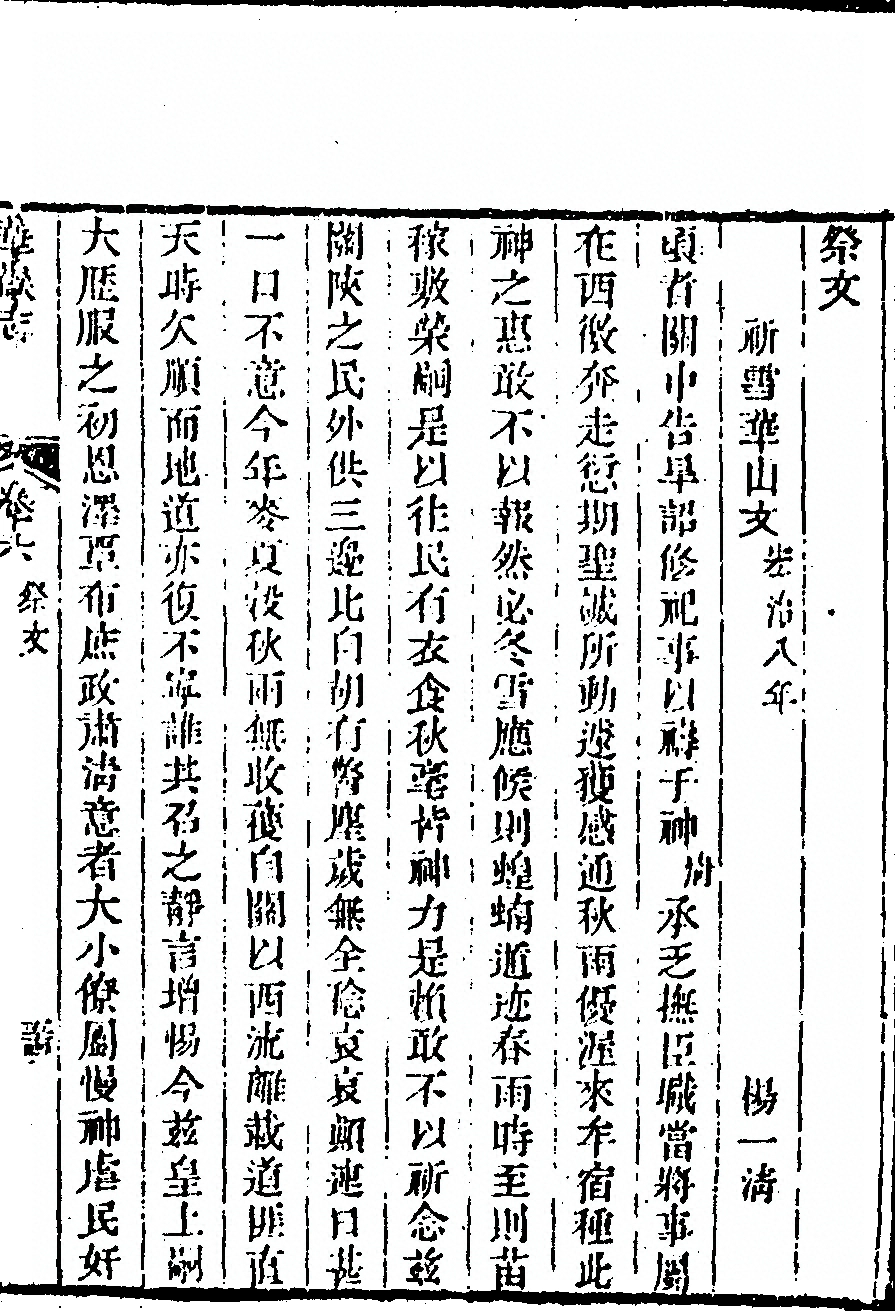 祭文
祈雪華山文 弘治八年 楊一清
頃者關中告旱詔修祀事以禱于神清承乏撫臣職當將事關
在西徼奔走愆期聖誠所動遂獲感通秋雨優渥來牟宿種此
神之惠敢不以報然必冬雪應候則蝗蝻遁迹春雨時至則苗
稼敷榮嗣是以往民有衣食秋毫皆神力是賴敢不以祈念兹
關陝之民外供三邊比自胡有警塵歲無全稔哀哀顛連日甚
一日不意今年麥夏榖秋雨無收穫自關以西流離載道匪直
天時欠順而地道亦復不寧誰其召之靜言增惕今兹皇上嗣
大歷服之初恩澤覃布庶政肅清意者大小僚屬慢神虐民奸
華嶽志 卷六 祭文